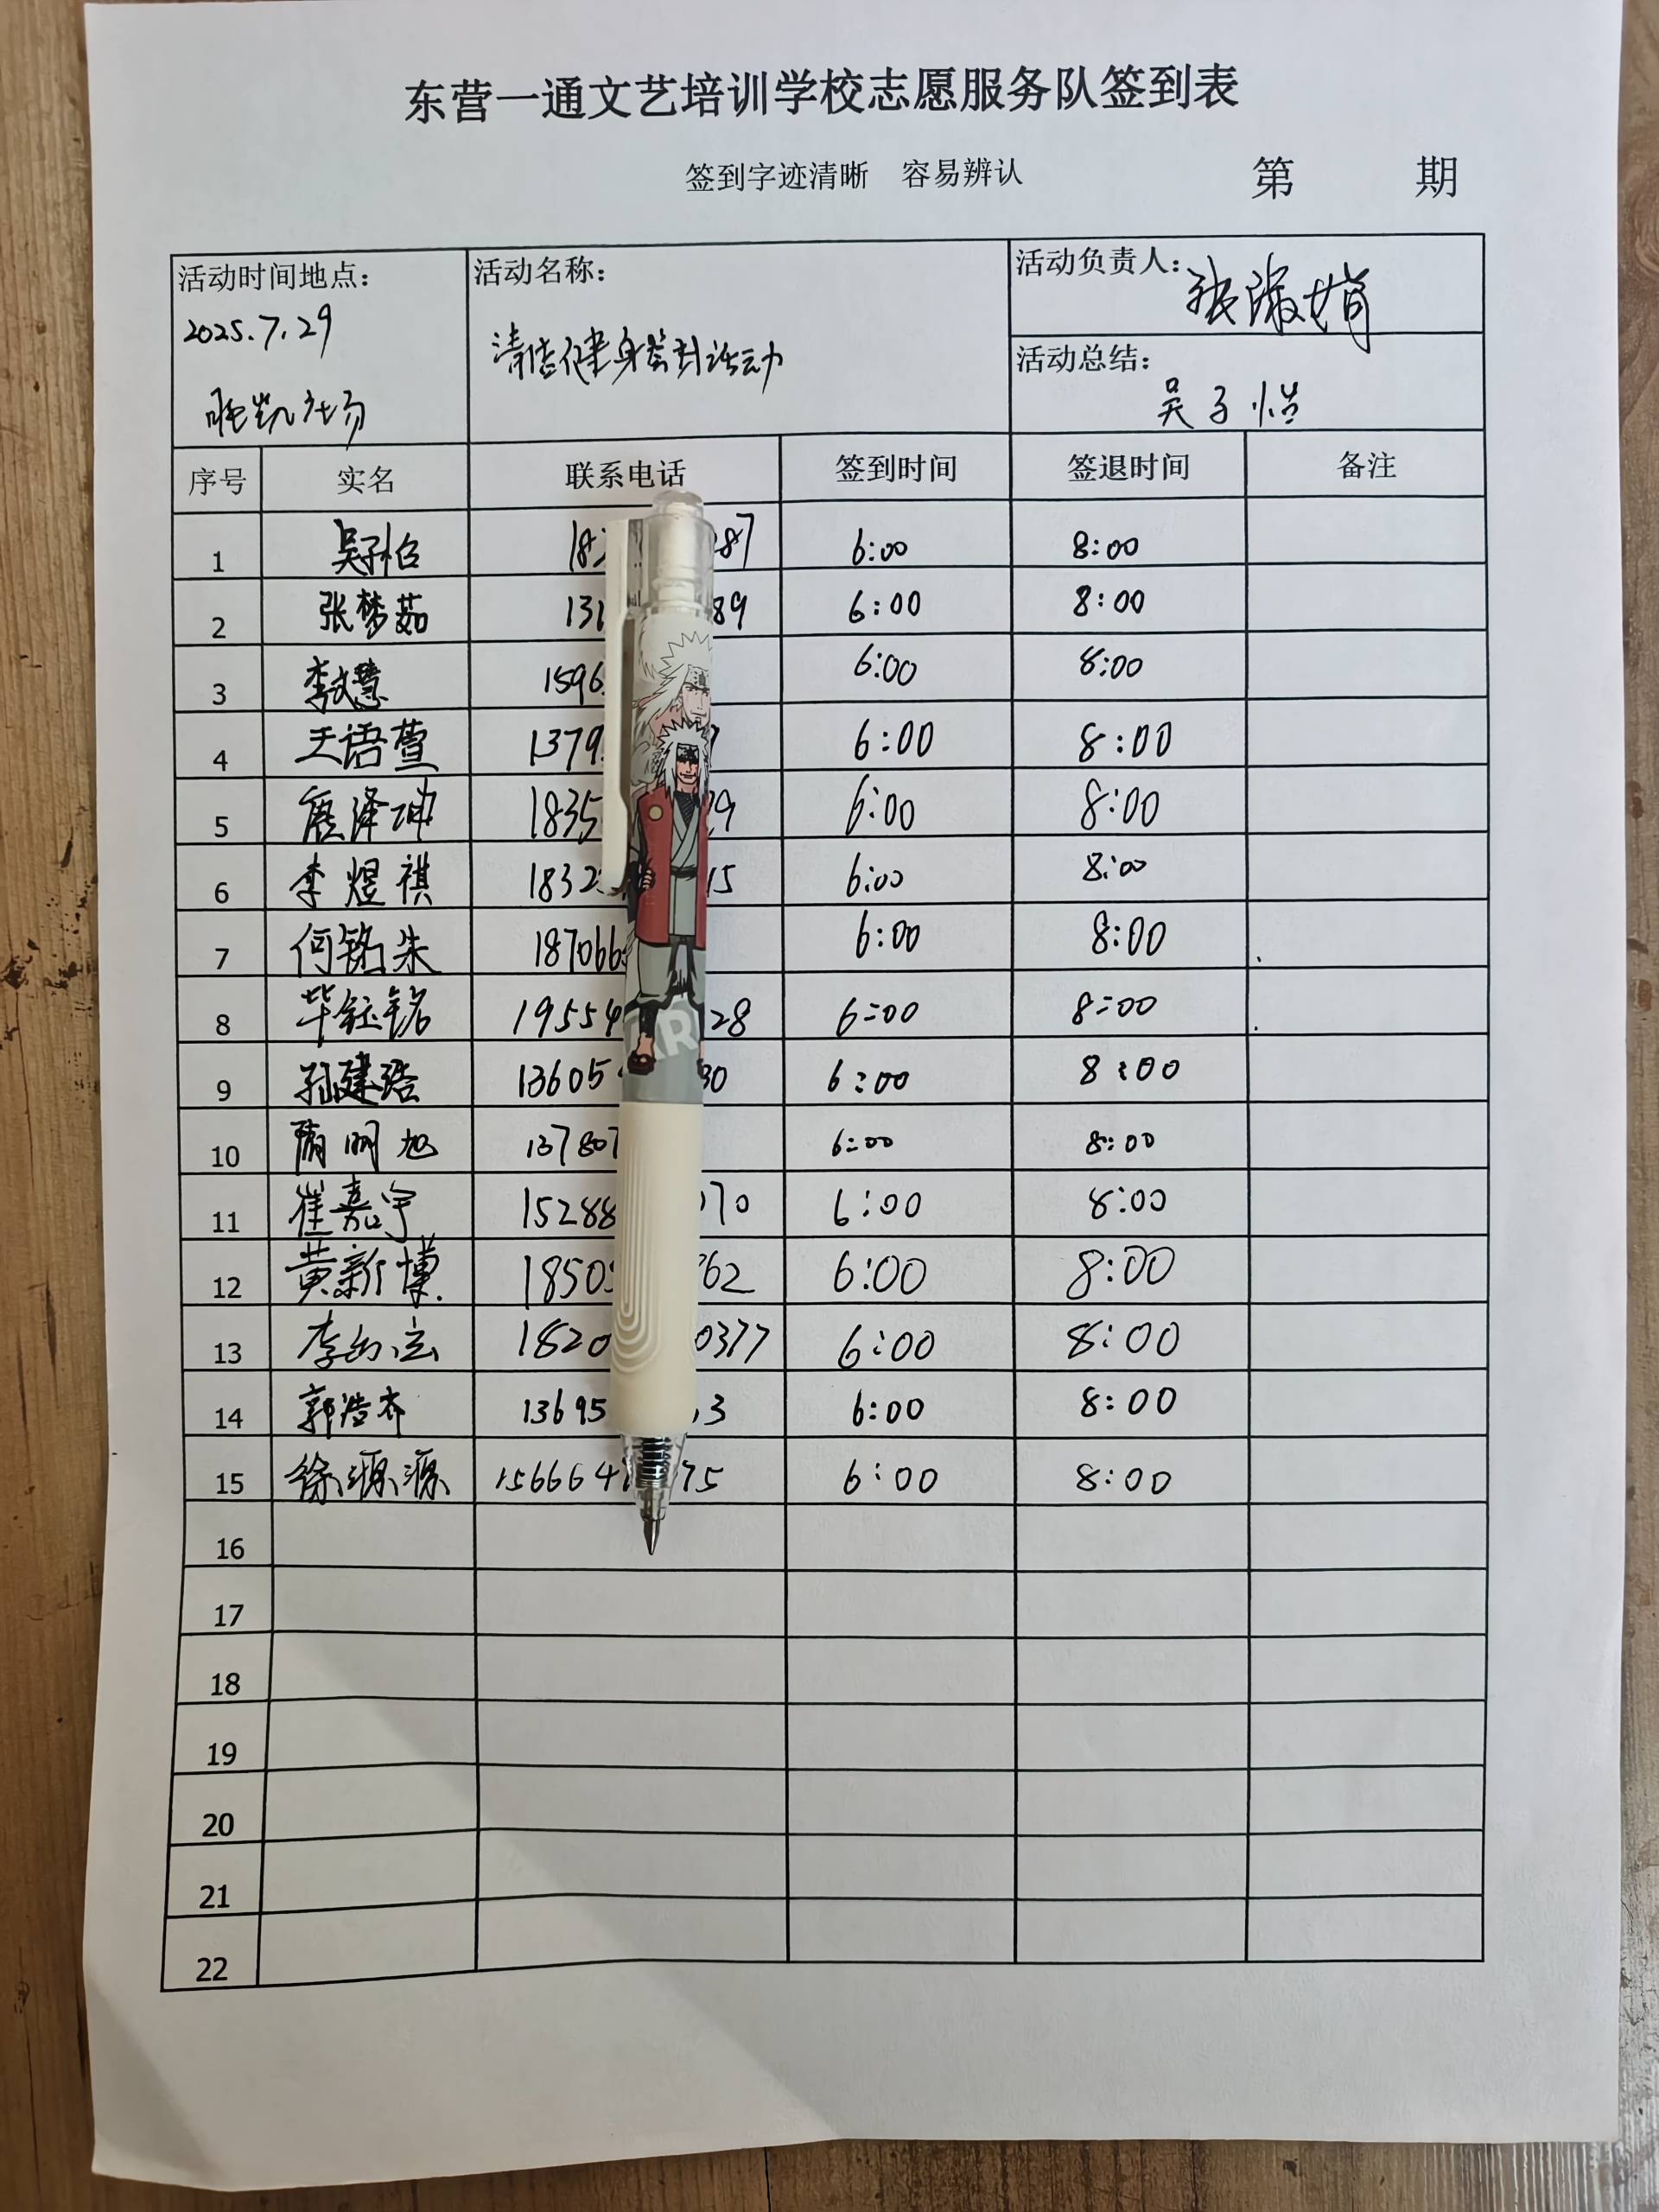 东营一通文艺培训学校志愿服务队签到表
签到字迹清晰 容易辨认 第 期
活动时间地点：
2025.7.29
凯广场
活动名称：
清洁健身器材活动
活动负责人：张淑娟
活动总结：
吴子怡
序号 实名 联系电话 签到时间 签退时间 备注
1 吴子怡 183 287 6:00 8:00
2 张梦茹 131 89 6:00 8:00
3 李慧 1596 6:00 8:00
4 王语萱 1379 7 6:00 8:00
5 唐泽坤 1835 79 6:00 8:00
6 李煜祺 1832 15 6:00 8:00
7 何铭朱 187066 6:00 8:00
8 毕钰铭 19554 28 6:00 8:00
9 孙建浩 13605 30 6:00 8:00
10 隋明旭 137807 6:00 8:00
11 崔嘉宇 15288 070 6:00 8:00
12 黄新博 1850 62 6:00 8:00
13 李 1820 0377 6:00 8:00
14 郭浩齐 13695 3 6:00 8:00
15 徐源源 156664 75 6:00 8:00
16
17
18
19
20
21
22